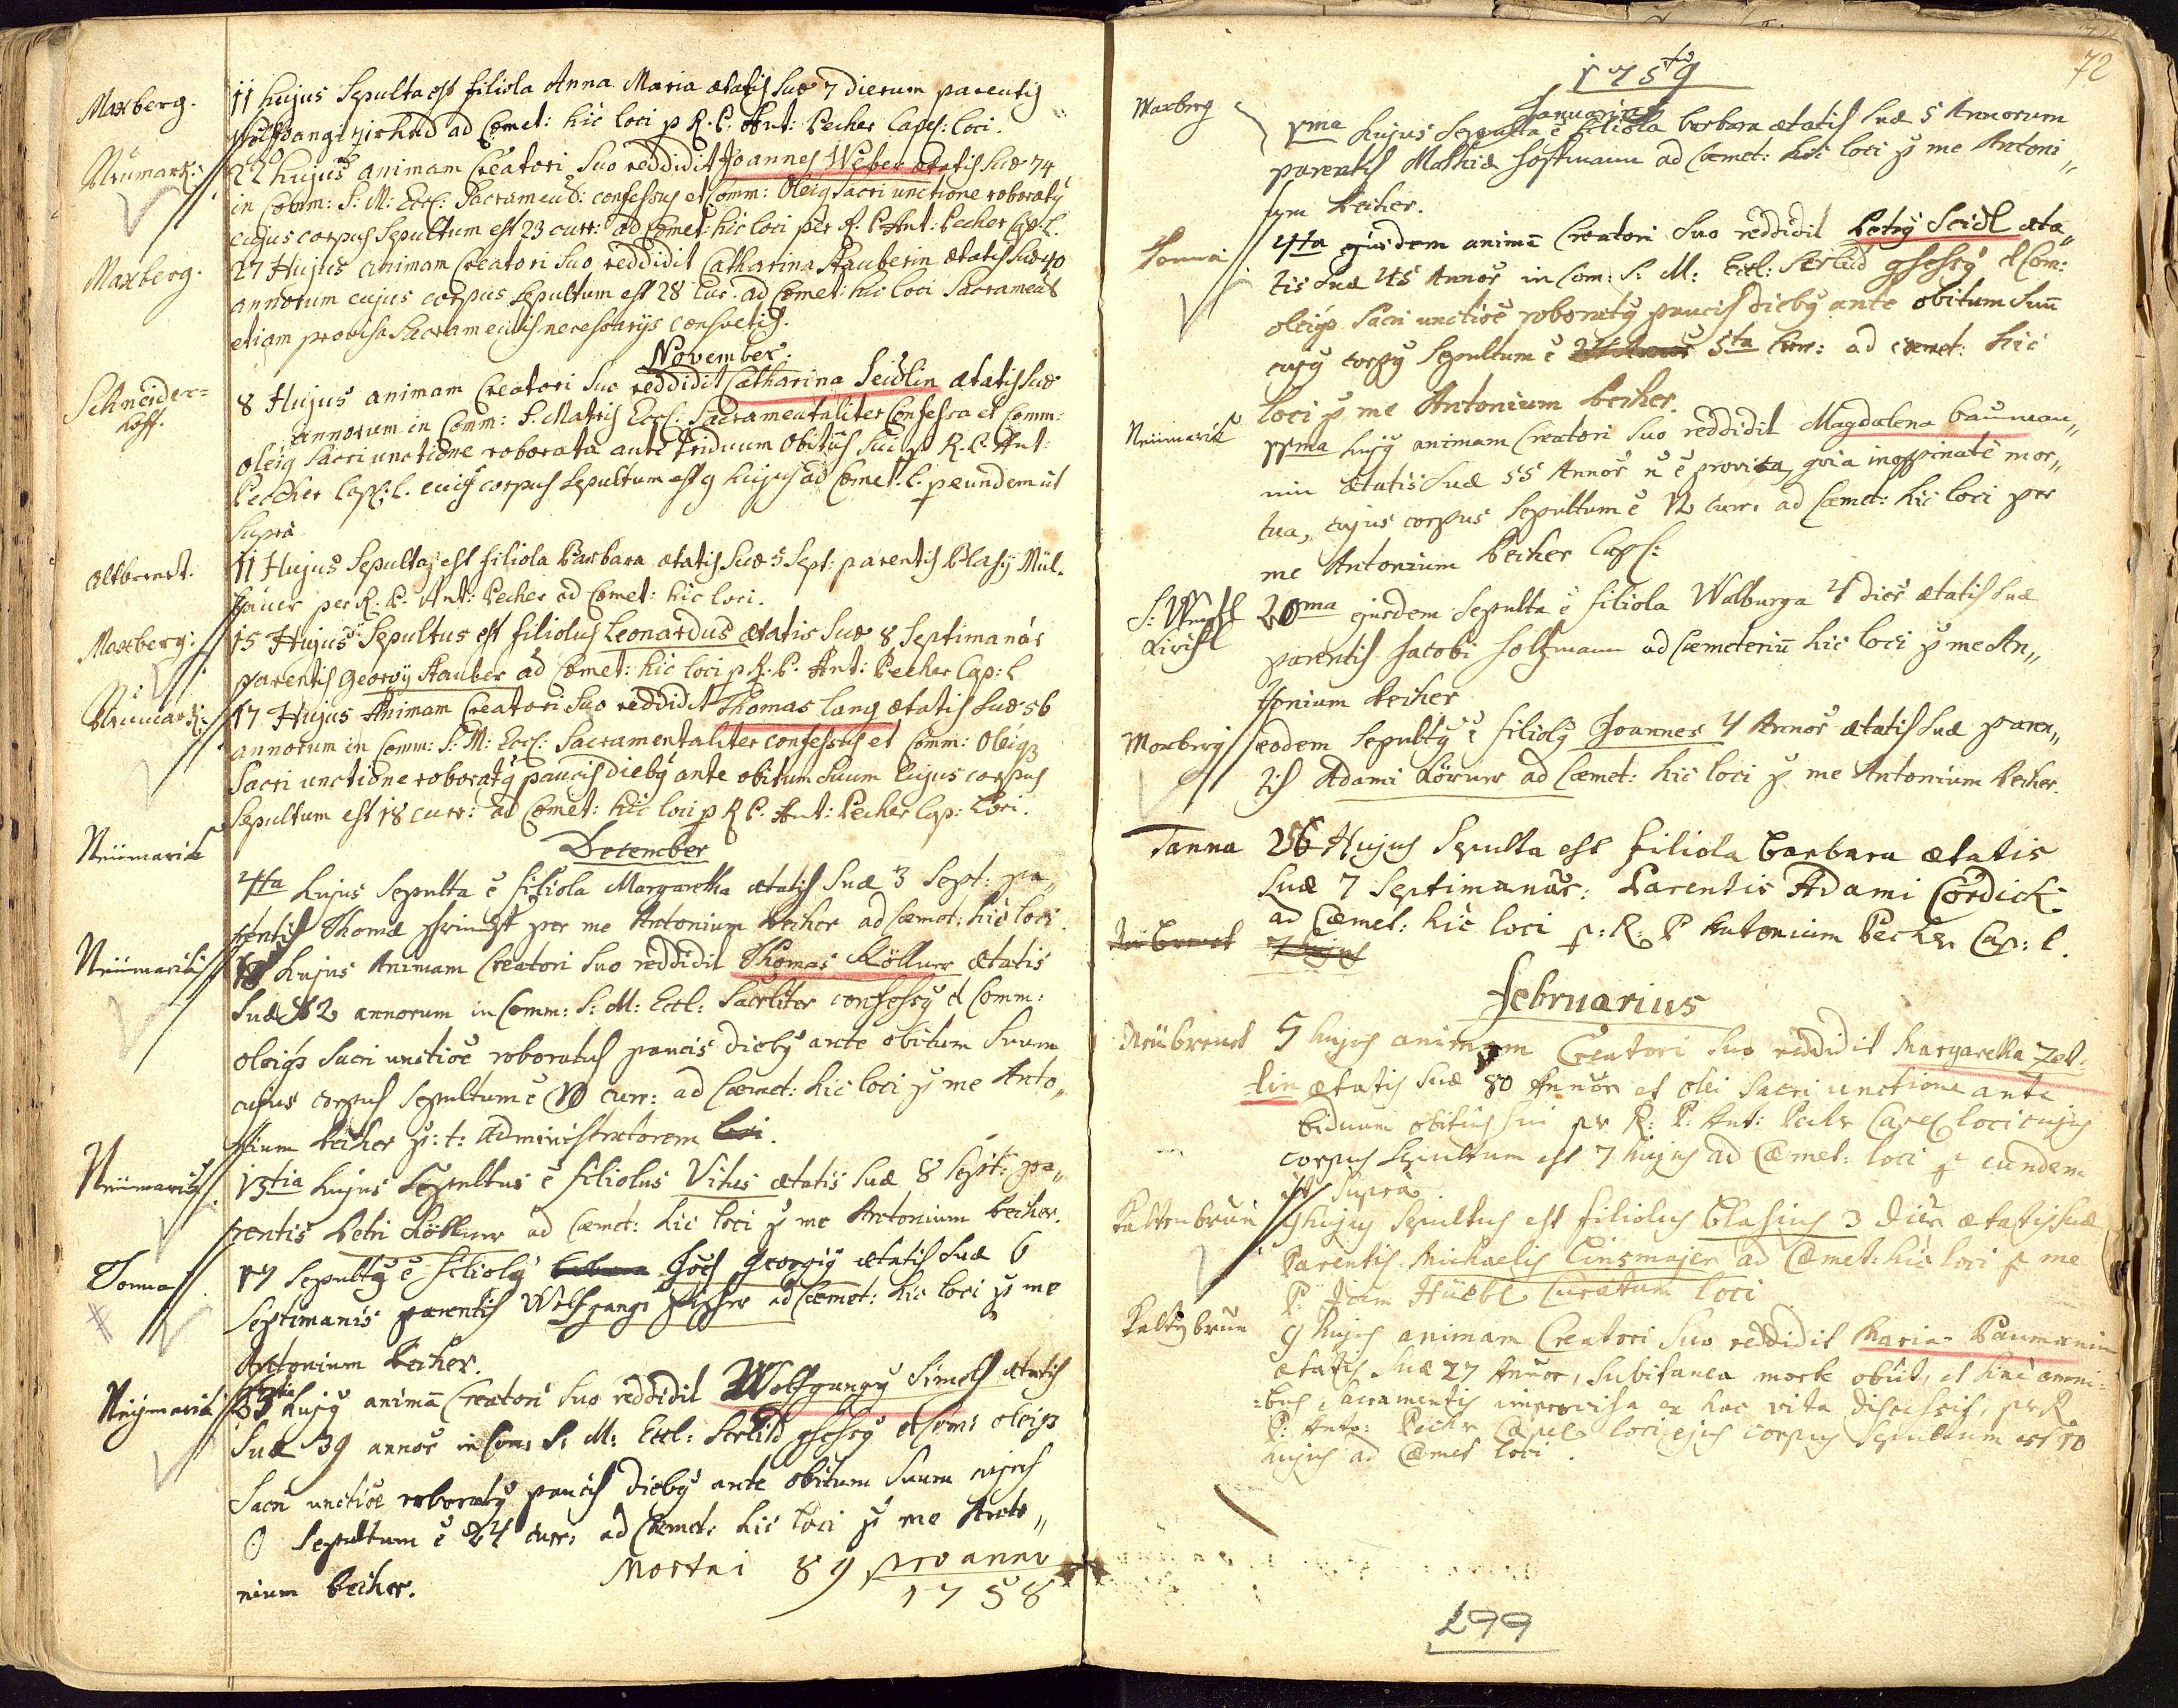 Maxberg. 11 hujus Sepulta est filiola Anna Maria ætatis suæ 7 dierum parentis
Wolffgangi ad Cœmet: hic loci p R. P. Ant: Pecher Capel: loci.
Neümark: 22 hujus animam Creatori suo reddidit Joannes Weber ætatis suæ 74
in Comm: S: M: Eccl: Sacrament: confessus et Comm: Oleiq Sacri unctione roboraty
cujus corpus Sepultum est 23 curr: ad Cœmet: hic loci per R. P. Ant: Pecher Cap. L.
Maxberg. 27 Hujus animam Creatori suo reddidit Catharina Stauberin ætatis suæ 40
annorum cujus corpus Sepultum est 28 Cur. ad Cœmet: hic loci Sacrament
etiam provisa Sacramentis necessarys consuetis.
November.
Schneider=
hoff. 8 Hujus animam Creatori suo reddidit Catharina Seidlin ætatis suæ
annorum in Comm: S. Matris Eccl: Sacramentaliter Confessa et Comm:
oleiq Sacri unctione roborata ante Triduum Obitus sui p R. P. Ant:
Pecher Cap: l. cuius corpus Sepultum est 9 hujus ad Cœmet. l. p eundem ut
supra
Altbrendt. 11 Hujus Sepulta est filiola Barbara ætatis suæ 5 Sept: parentis Blasy Mül-
haüer per R. P. Ant: Pecher ad Cœmet: hic loci.
Maxberg: 15 Hujus Sepultus est filiolus Leonardus ætatis suæ 8 Septimanar
parentis Georgy Stauber ad Cœmet: hic loci p R. P. Ant: Pecher Cap: l
Neümark: 17 Hujus Animam Creatori suo reddidit Thomas Lang ætatis suæ 56
annorum in Comm: S: M: Eccl: Sacramentaliter confessus et Comm: Oleiq
Sacri unctione roboraty paucis dieby ante obitum suum Cujus corpus
Sepultum est 18 curr: ad Cœmet: hic loci p R P. Ant: Pecher Cap: Loci.
December
Neümarik 4ta hujus Sepulta e filiola Margaretha ætatis suæ 3 Sept: pa„
rentis Thomæ per me Antonium Pecher ad Cæmet: hic loci.
Neümarik hujus Animam Creatori suo reddidit Thomas Köllner ætatis
suæ 82 annorum in Comm: S: M: Eccl: Sacrliter confessy et Comm:
oleiq Sacri unctioe roboratus paucis dieby ante obitum suum
cujus corpus Sepultum e curr: ad Cæmet: hic loci p me Anto„
nium Pecher p: t: Administratorem loci.
Neümarik 13tia hujus Sepultus e filiolus Vitus ætatis suæ 8 Sept: pa„
rentis Petri Köllner ad Cæmet: hic loci p me Antonium Pecher.
Tonna 17 Sepulty e filioly Joes Georgiy ætatis suæ 6
Septimanis parentis Wolfgangi Fischer ad Cæmet: hic loci p me
Antonium Pecher.
Neümarik 23tia hujy animā Creatori suo reddidit Wolfgangy Simeth ætatis
suæ 39 annor in Com: S: M: Eccl: et Com: oleiq
Sacri unctioe roboraty paucis dieby ante obitum suum cujus
Sepultum e 24 curr: ad Cæmet: hic loci p me Anto„
nium Pecher.
Mortui 89 pro anno
1758
72
1759
Januarius
Maxberg 1ma hujus Sepulta e filiola barbara ætatis suæ 5 Annorum
parentis Mathiæ Hoffmann ad Cæmet: hic loci p me Antoni„
um Pecher.
Tonna 4ta ejusdem animā Creatori suo reddidit Petry Seidl æta„
tis suæ 45 Annor in Com: S: M: Eccl: et Com:
oleiq Sacri unctioe roboraty paucis dieby ante obitum suū
cujy corpy Sepultum e 5ta curr: ad cæmet: hic
loci p me Antonium Pecher.
Neümarik 11ma hujy animam Creatori suo reddidit Magdalena bauman„
nin ætatis suæ 55 Annor n e provisa, quia inopinate mor„
tua, cujus corpus Sepultum e 12 curr: ad Cæmet: hic loci per
me Antonium Pecher Capl:
20ma ejusdem Sepulta e filiola Walburga 4 dier ætatis suæ
parentis Jacobi Holtzmann ad Cæmeteriū hic loci p me An„
tonium Pecher
Maxberg eodem Sepulty e filioly Joannes 4 Annor ætatis suæ paren„
tis Adami Körner ad Cæmet: hic loci p me Antonium Pecher.
Tanna 26 Hujus Sepulta est filiola Barbara ætatis
suæ 7 Septimanar: Parentis Adami Cördick
ad Cæmet: hic loci p: R: P Antonium Pecher Cap: l.
Neübrendt 7 hujus
Februarius
Neübrendt 5 hujus animam Creatori suo reddidit Margaretha Zet-
lin ætatis suæ 80 Annor et olei Sacri unctione ante
biduum obitus sui per R: P: Ant: Pecher Capel loci cujus
corpus Sepultum est 7 hujus ad Cæmet: loci p eundem
ut supra.
Kaltenbrun 9 hujus Sepultus est filiolus Blasius 3 dier ætatis suæ
Parentis Michaelis Einsmajer ad Cæmet: hic loci p me
P. Joan Hüebl Curatum loci
Kaltenbrun 9 hujus animam Creatori suo reddidit Maria Baumanin
ætatis suæ 27 Annor, subitanea morte obiit, et sine omni-
:bus Sacramentis improvisa ex hac vita discessit, per R
P: Anto: Pecher Capel loci ejus corpus Sepultum est 10
hujus ad Cæmet loci.
299